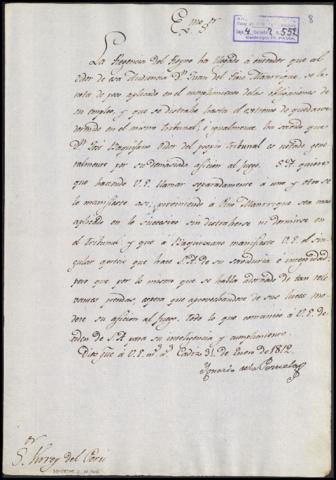 Exmo. Sor.
8
La Regencia del Reyno ha llegado a entender que el
Oidor de esa Audiencia Dn. Juan del Pino Manrrique, se le
nota de poco aplicado en el cumplimiento de las obligaciones de
su empleo, y que se distrahe hasta el extremo de quedarse
dormido en el mismo Tribunal; e igualmente ha sabido que
Dn. José Baquijano Oidor del propio Tribunal es notado gene-
ralmente por su demasiada aficion al juego. S.A. quiere
que haciendo V.E. llamar separadamente a uno y otro se
lo manifieste asi, previniendo a Pino Manrrique sea mas
aplicado en lo sucesivo sin distraherse ni dormirse en
el tribunal y que a Baquijano manifieste V.E. el sin-
gular aprecio que hace S.A. de su sabiduria e integridad
pero que por lo mismo que se halla adornado de tan rele-
vantes prendas, espera que aprovechandose de sus luces mo-
dere su aficion al juego. Todo lo que comunico a V.E. de
orden de S.A. para su inteligencia y cumplimiento.
Dios gue. a V.E. ms. as. Cadiz 31 de Enero de 1812.
Ignacio de la Pezuela
Sr. Virrey del Perú